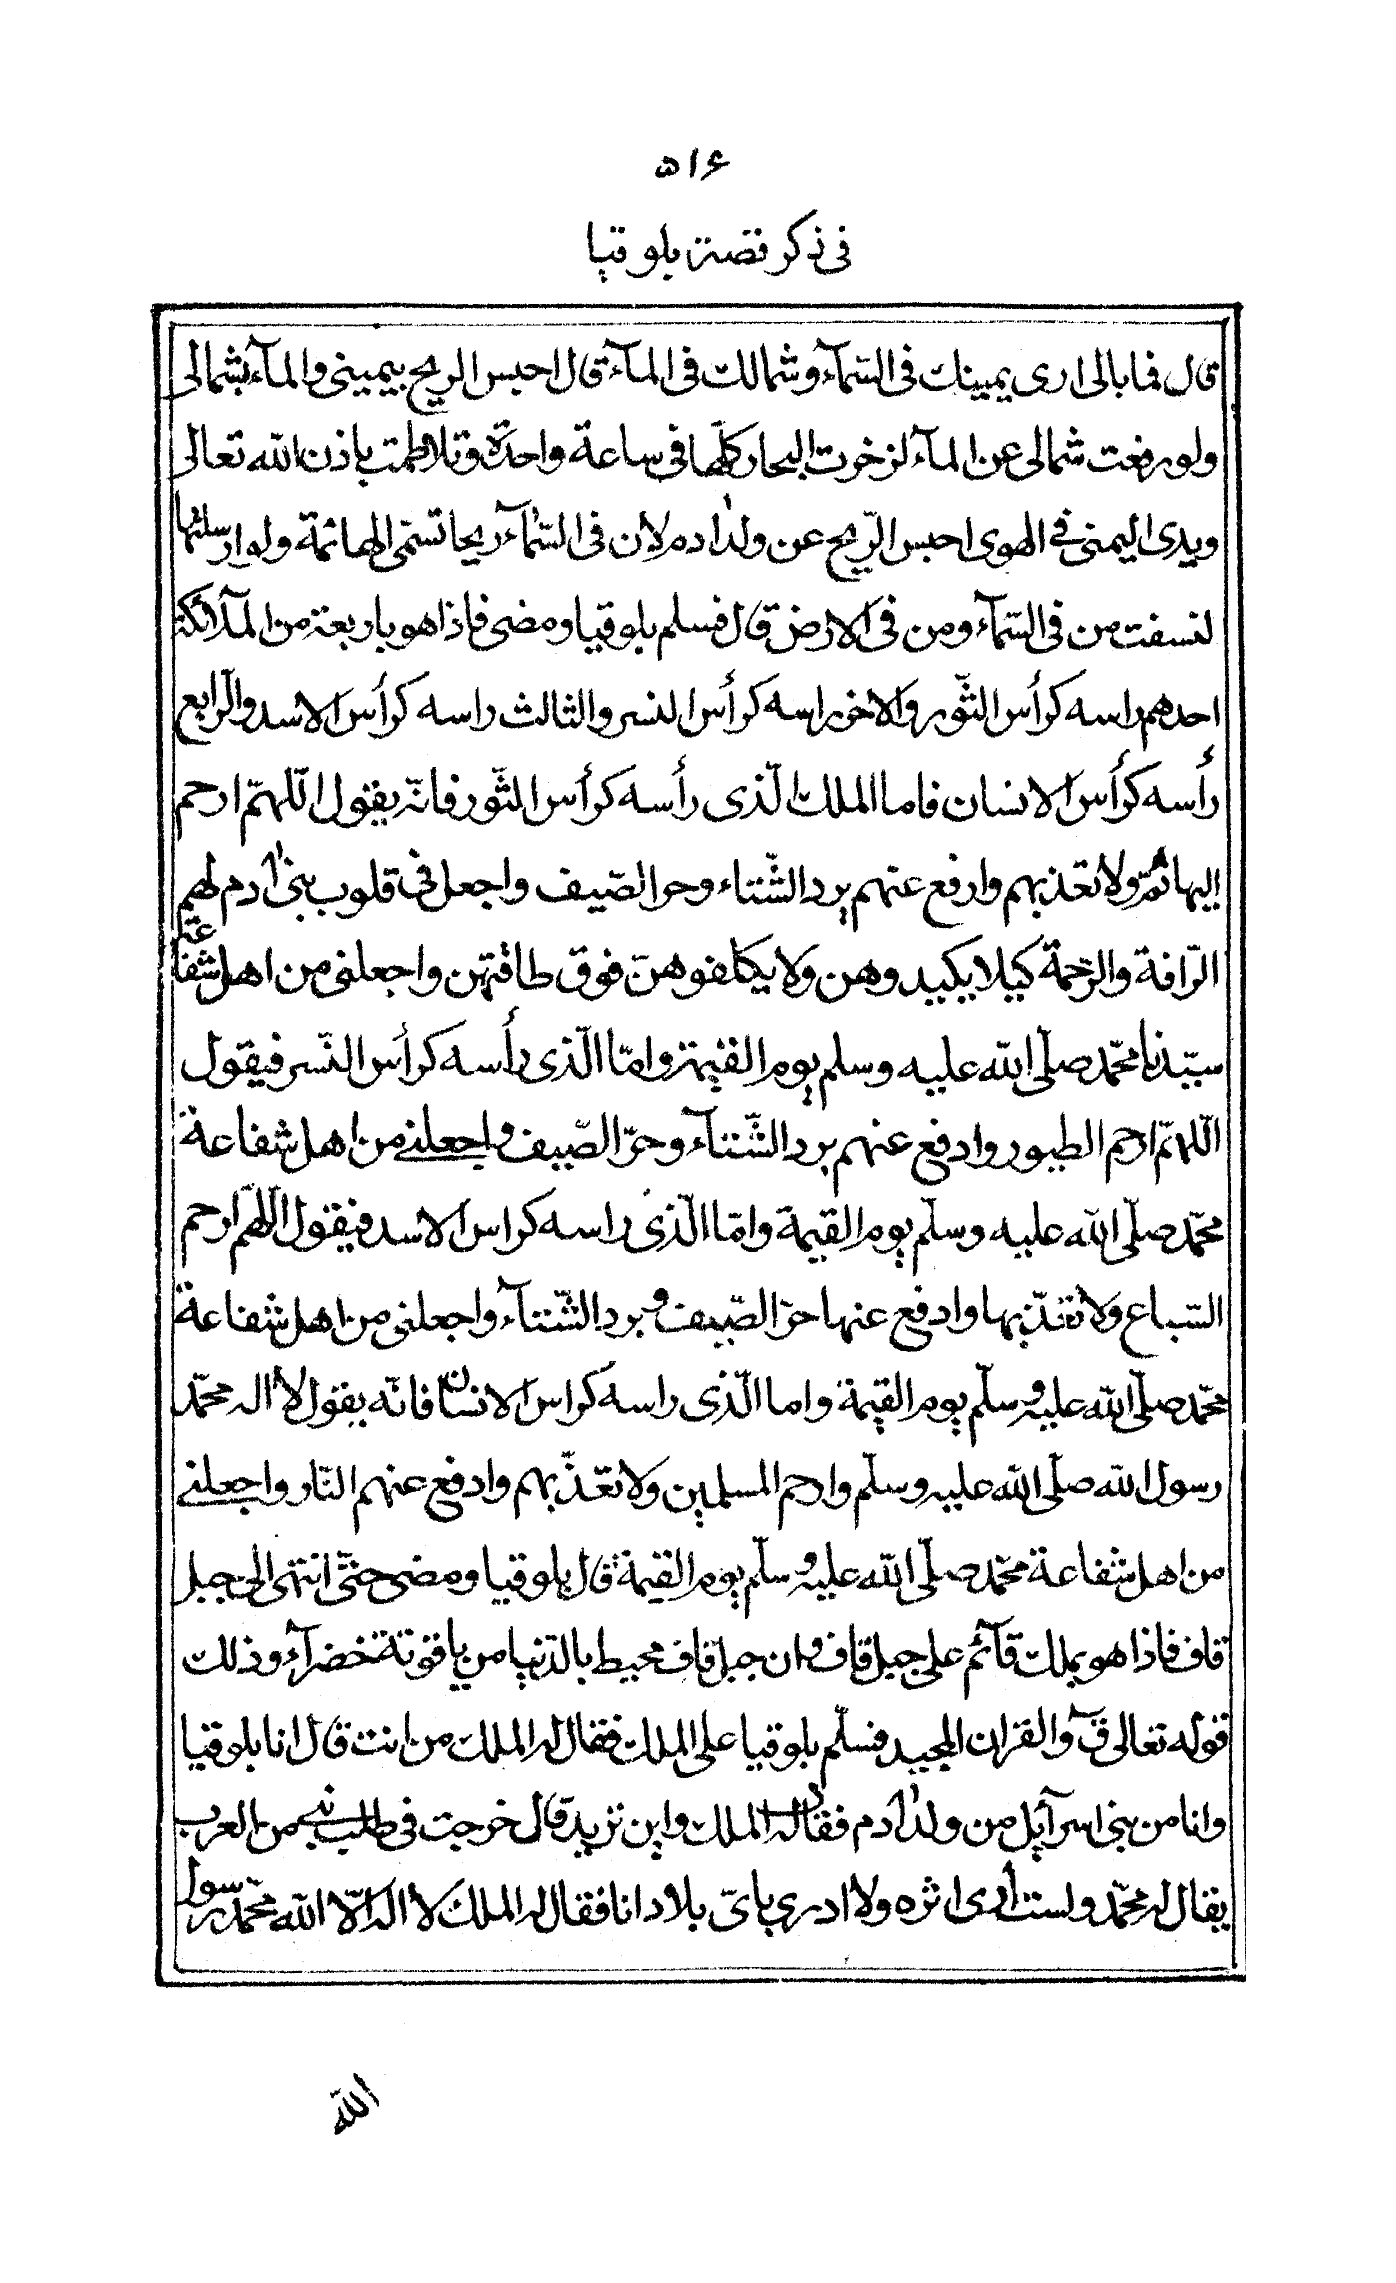 ۵۱۶
فى ذكر قصة بلوقيا
قال فما بالى ارى يمينك فى السّمآء وشمالك فى المآء قال احبس الريح بيمينى والمآء بشمالى
ولو رفعت شمالى عن المآء لزخرت البحار كلّها فى ساعة واحدة وتلاطمت باذن الله تعالى
ويدى اليمنى فى الهوى احبس الرّيح عن ولد ادم لان فى السّمآء ريحا تسمّى الهائمة ولو ارسلتها
لنسفت من فى السّمآء ومن فى الارض قال فسلم بلوقيا ومضى فاذا هو باربعة من الملآئكة
احدهم راسه كرأس الثّور والاخر راسه كرأس النسر والثالث راسه كرأس الاسد والرّابع
رأسه كرأس الانسان فاما الملك الّذى رأسه كرأس الثّور فانّه يقول اللّهمّ ارحم
البهائم ولا تعذبهم وارفع عنهم برد الشّتاء وحر الصّيف واجعل فى قلوب بنى ادم لهم
الرّافة والرّحمة كيلا يكيدوهن ولا يكلفوهنّ فوق طاقتهن واجعلنى من اهل شفاعة
سيّدنا محمّد صلّى الله عليه وسلم يوم القيمة وامّا الّذى رأسه كرأس النّسر فيقول
اللّهمّ ارحم الطيور وادفع عنهم برد الشّتآء وحرّ الصّيف واجعلنى من اهل شفاعة
محمّد صلّى الله عليه وسلّم يوم القيمة وامّا الّذى راسه كراس الاسد فيقول اللّهم ارحم
السّباع ولا تعذّبها وادفع عنها حرّ الصّيف وبرد الشّتآء واجعلنى من اهل شفاعة
محمّد صلّى الله عليه وسلّم يوم القيمة واما الّذى راسه كراس الانسان فانّه يقول لا اله محمّد
رسول الله صلّى الله عليه وسلّم وارحم المسلمين ولا تعّذّبهم وادفع عنهم النّار واجعلنى
من اهل شفاعة محمّد صلّى الله عليه وسلّم يوم القيمة قال بلوقيا ومضى حتّى انتهى الى جبل
قاف فاذا هو بملك قآئم على جبل قاف وان جبل قاف محيط بالدّنيا من ياقوتة خضرآء وذلك
قوله تعالى قۤ والقران المجيد فسلّم بلوقيا على الملك فقال له الملك من انت قال انا بلوقيا
وانا من بنى اسرآئيل من ولد ادم فقال له الملك واين تريد قال خرجت فى طلب نبى من العرب
يقال له محمّد ولست ارى اثره ولا ادرى باىّ بلاد انا فقال له الملك لا اله الّا الله محمّد رسول
الله